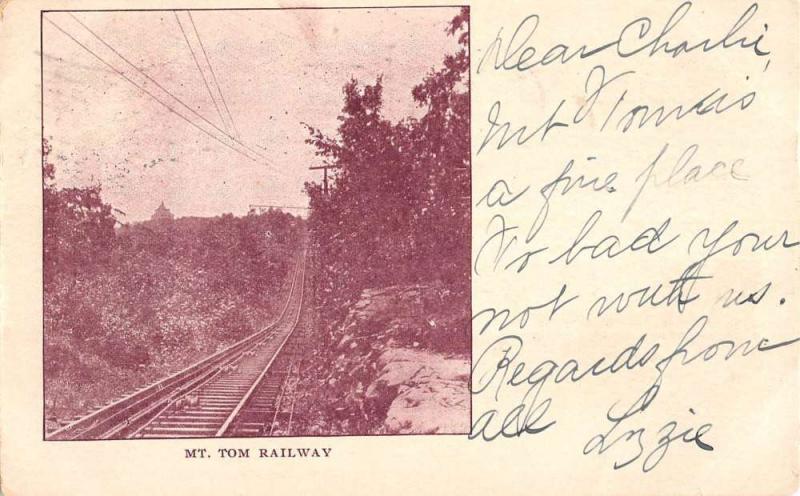 Dear Charlie,
Mt Tom is
a fine place
To bad your
not with us.
Regards from
all Lizzie
MT. TOM RAILWAY